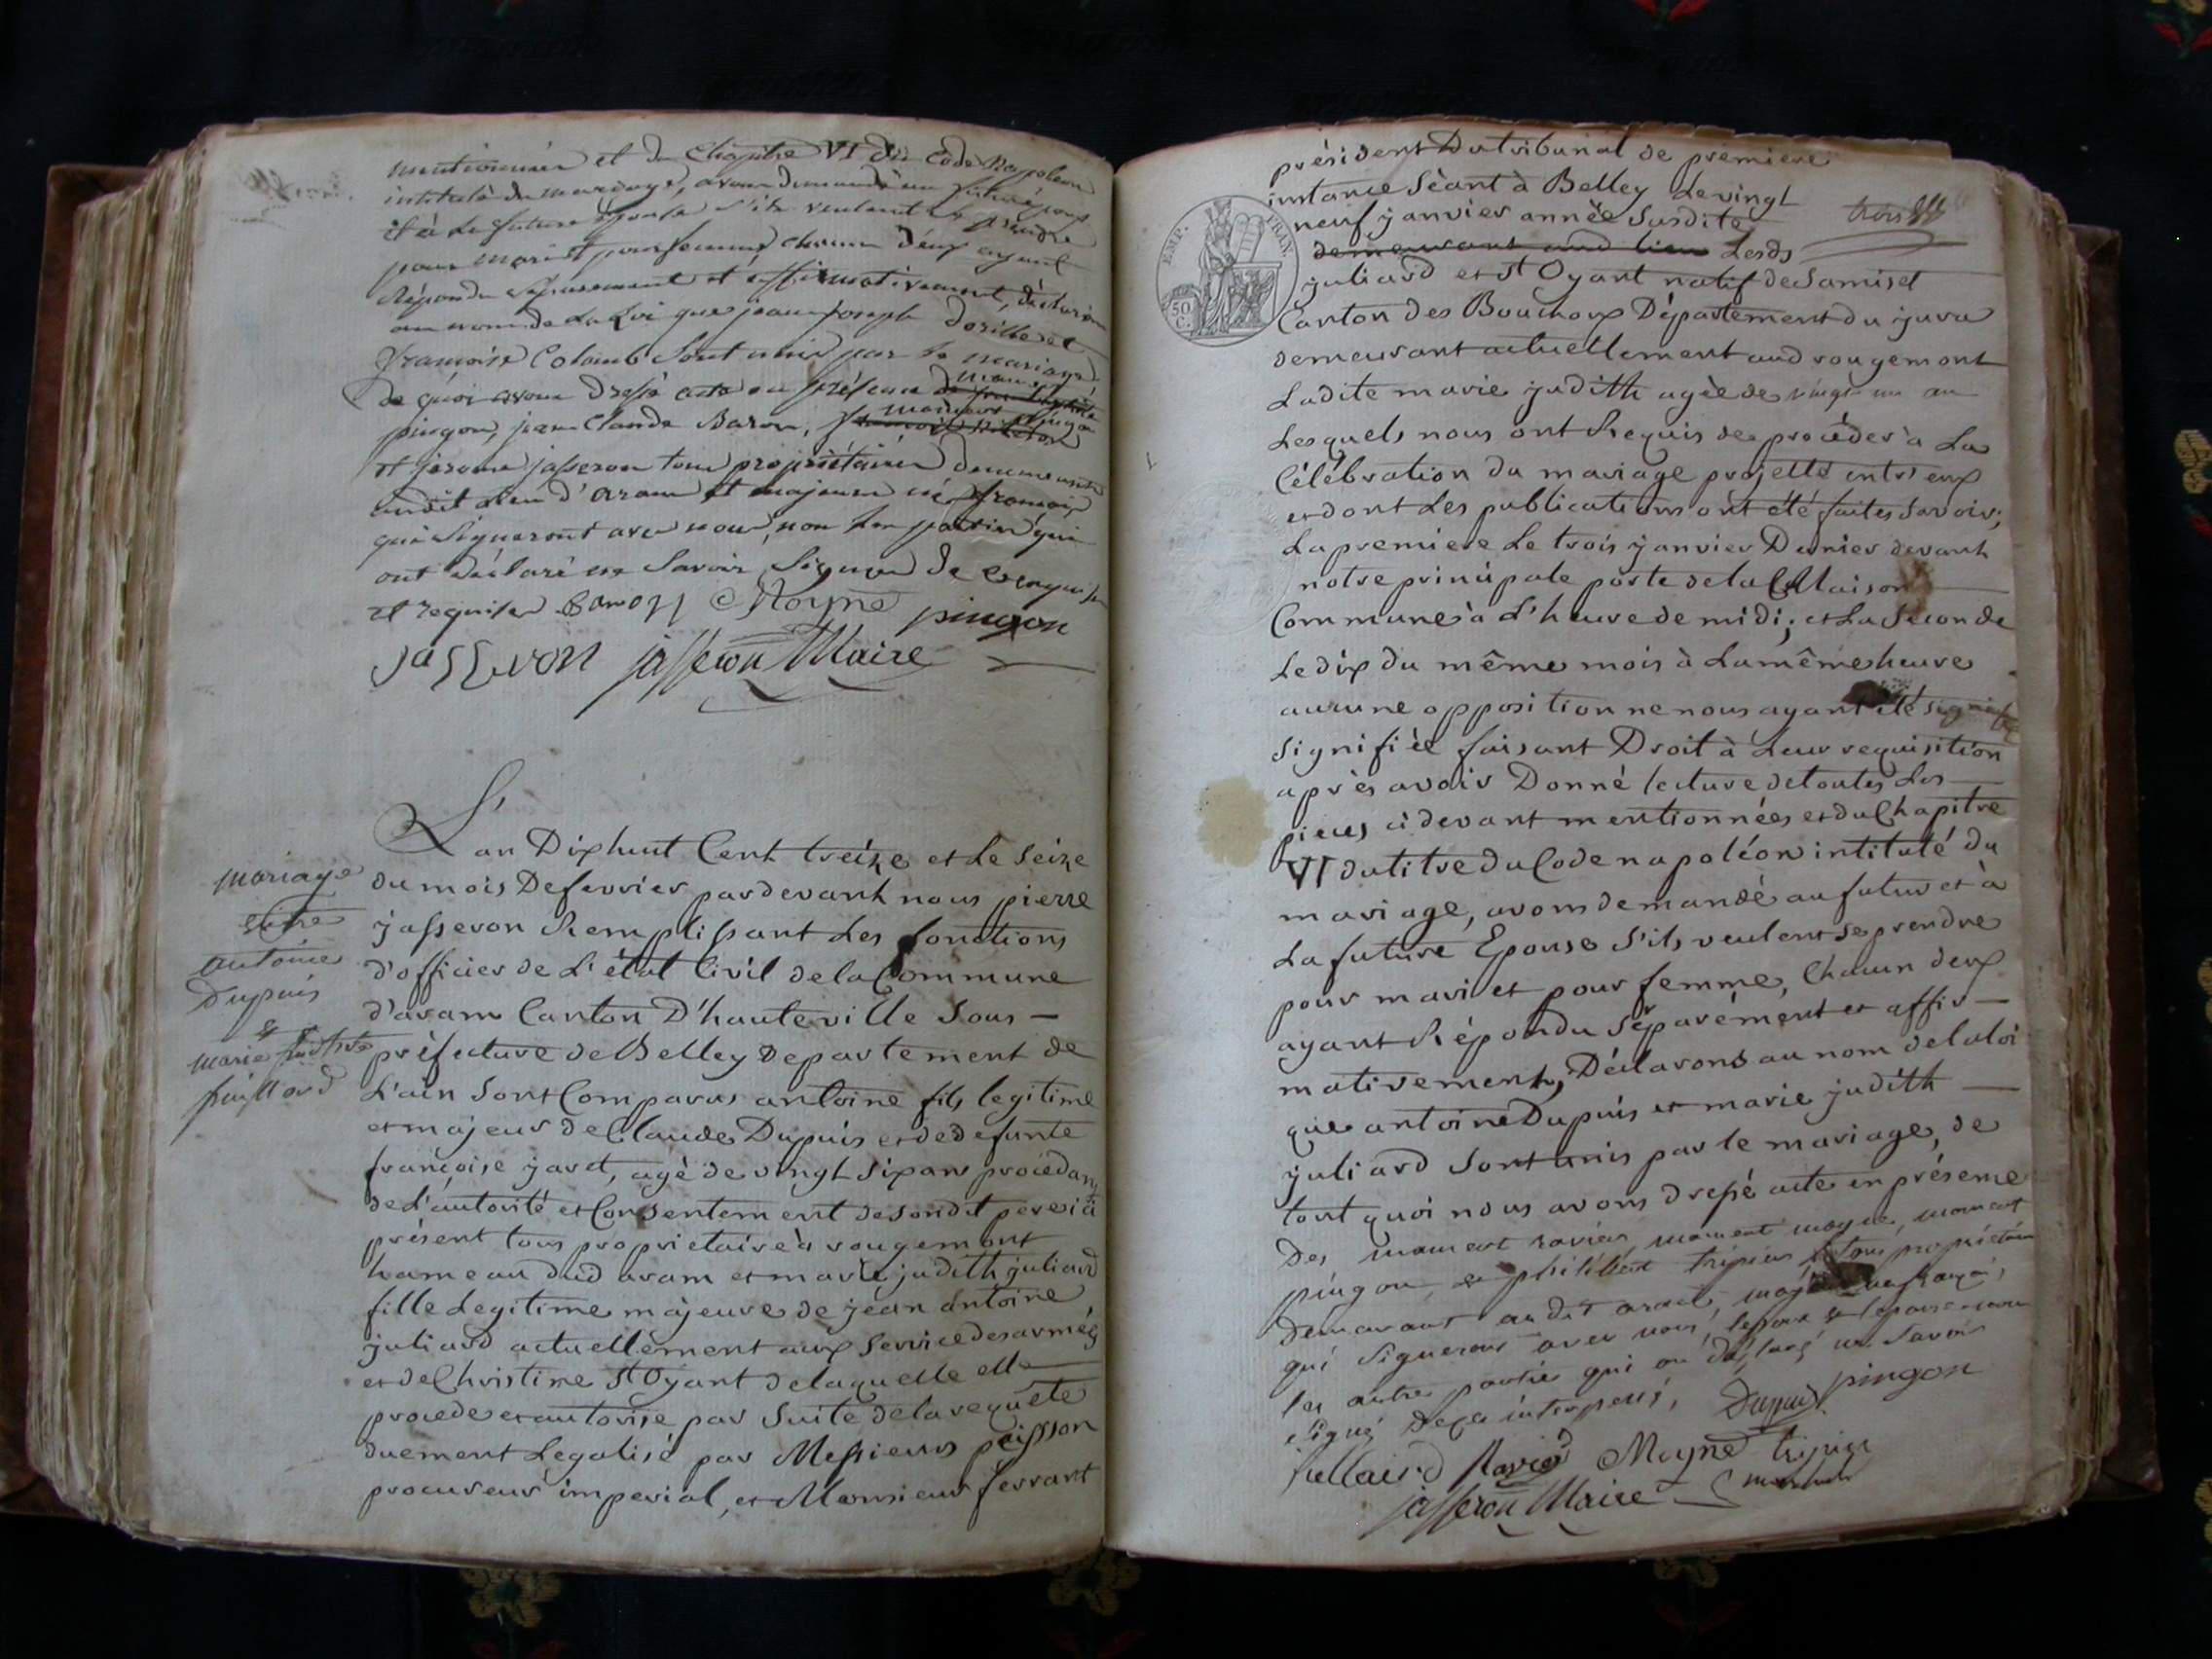 mentionnées et du Chapitre VI du Code Napoléon
intitulé du mariage, avons demandé au futur époux
et à la future épouse s'ils veulent se prendre
pour mari et pour femme, chacun d'eux ayant
répondu séparément et affirmativement, déclarons
au nom de la Loi que jean joseph Dorille et
françoise Colomb sont unis par le mariage
de quoi avons dressé acte en présence de
mamert
pingon, jean Claude Baron,
mamert pingon
et jerome jasseron tous propriétaires demeurants
audit lieu d'aram et majeurs né françois
qui signeront avec nous, non les parties qui
ont déclaré ne savoir signer de ce enquises
et requises Baron Moyne pingon
jasseron jasseron Maire
mariage
entre
antoine
Dupuis
et
marie judith
juillard
L'an Dix huit Cent treize et Le Seize
du mois De fevrier pardevant nous pierre
jasseron Remplissant Les fonctions
d'officier de L'état Civil de la Commune
d'aram Canton D'hauteville Sous —
préfecture de Belley Departement de
L'ain Sont Comparus antoine fils legitime
et majeur de Claude Dupuis et de defunte
françoise jaret, agé de vingt Six ans procedant
de L'autorité et Consentement de son dit pere ici
présent tous proprietaire à rougemont
hameau dud aram et marie judith juliard
fille Legitime majeure de jean antoine
juliard actuellement aux Service des armées
et de Christine St Oyant de laquelle elle
procede et autorise par Suite de la requête
duement Legalisé par Messieurs poisson
procureur imperial, et Monsieur ferrant
président Du tribunal de premiere
instance Séant à Belley Le vingt
neuf janvier année Susdite
demeurant aud lieu Lesds
EMP. FRAN.
50 C.
juliard et St Oyant natif de Samisel
Canton des Bouchoux Département du jura
demeurant actuellement aud rougemont
Ladite marie judith agée de vingt un an
Lesquels nous ont Requis de procéder à La
Célébration du mariage projetté entr'eux
et dont Les publications ont été faites Savoir;
La premiere Le trois janvier Dernier devant
notre principale porte de la Maison
Commune à L'heure de midi; et La Seconde
Le dix du même mois à La même heure
aucune opposition ne nous ayant été signifiée
signifiée faisant Droit à Leur requisition
après avoir Donné lecture de toutes Les
pieces ci devant mentionnées et du Chapitre
VI du titre du Code napoléon intitulé du
mariage, avons demandé au futur et à
La future Epouse S'ils veulent se prendre
pour mari et pour femme, Chacun deux
ayant Répondu Séparément et affir—
mativement, Déclarons au nom de la loi
que antoine Dupuis et marie judith —
juliard Sont unis par le mariage, de
tout quoi nous avons dressé acte en présence
Des mamert ravier, mamert moyne, mamert
pingon, et philibert tripier, tous propriétaires
Demeurant au dit aram,
qui Signeront avec nous, l'epoux et l'epouse non
les autre partie qui on déclaré ne Savoir
signé De ce interpellé, Dupuis pingon
juillaird Ravier Moyne tripier
jasseron Maire